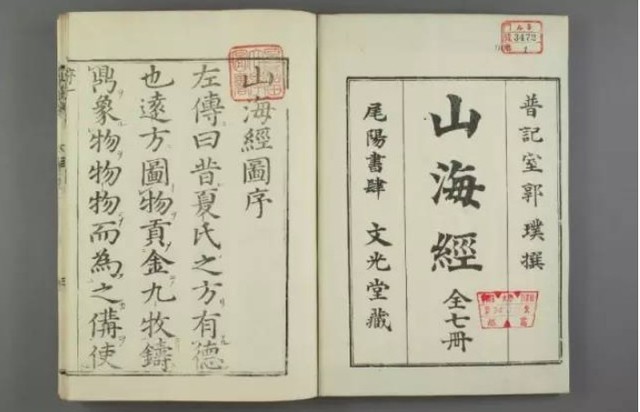 3472
1
晋記室郭璞撰
山海經
全七冊
尾陽書肆 文光堂藏
山海經圖序
左傳曰昔夏氏之方有德
也遠方圖物貢金九牧鑄
鼎象物物物而為之備使